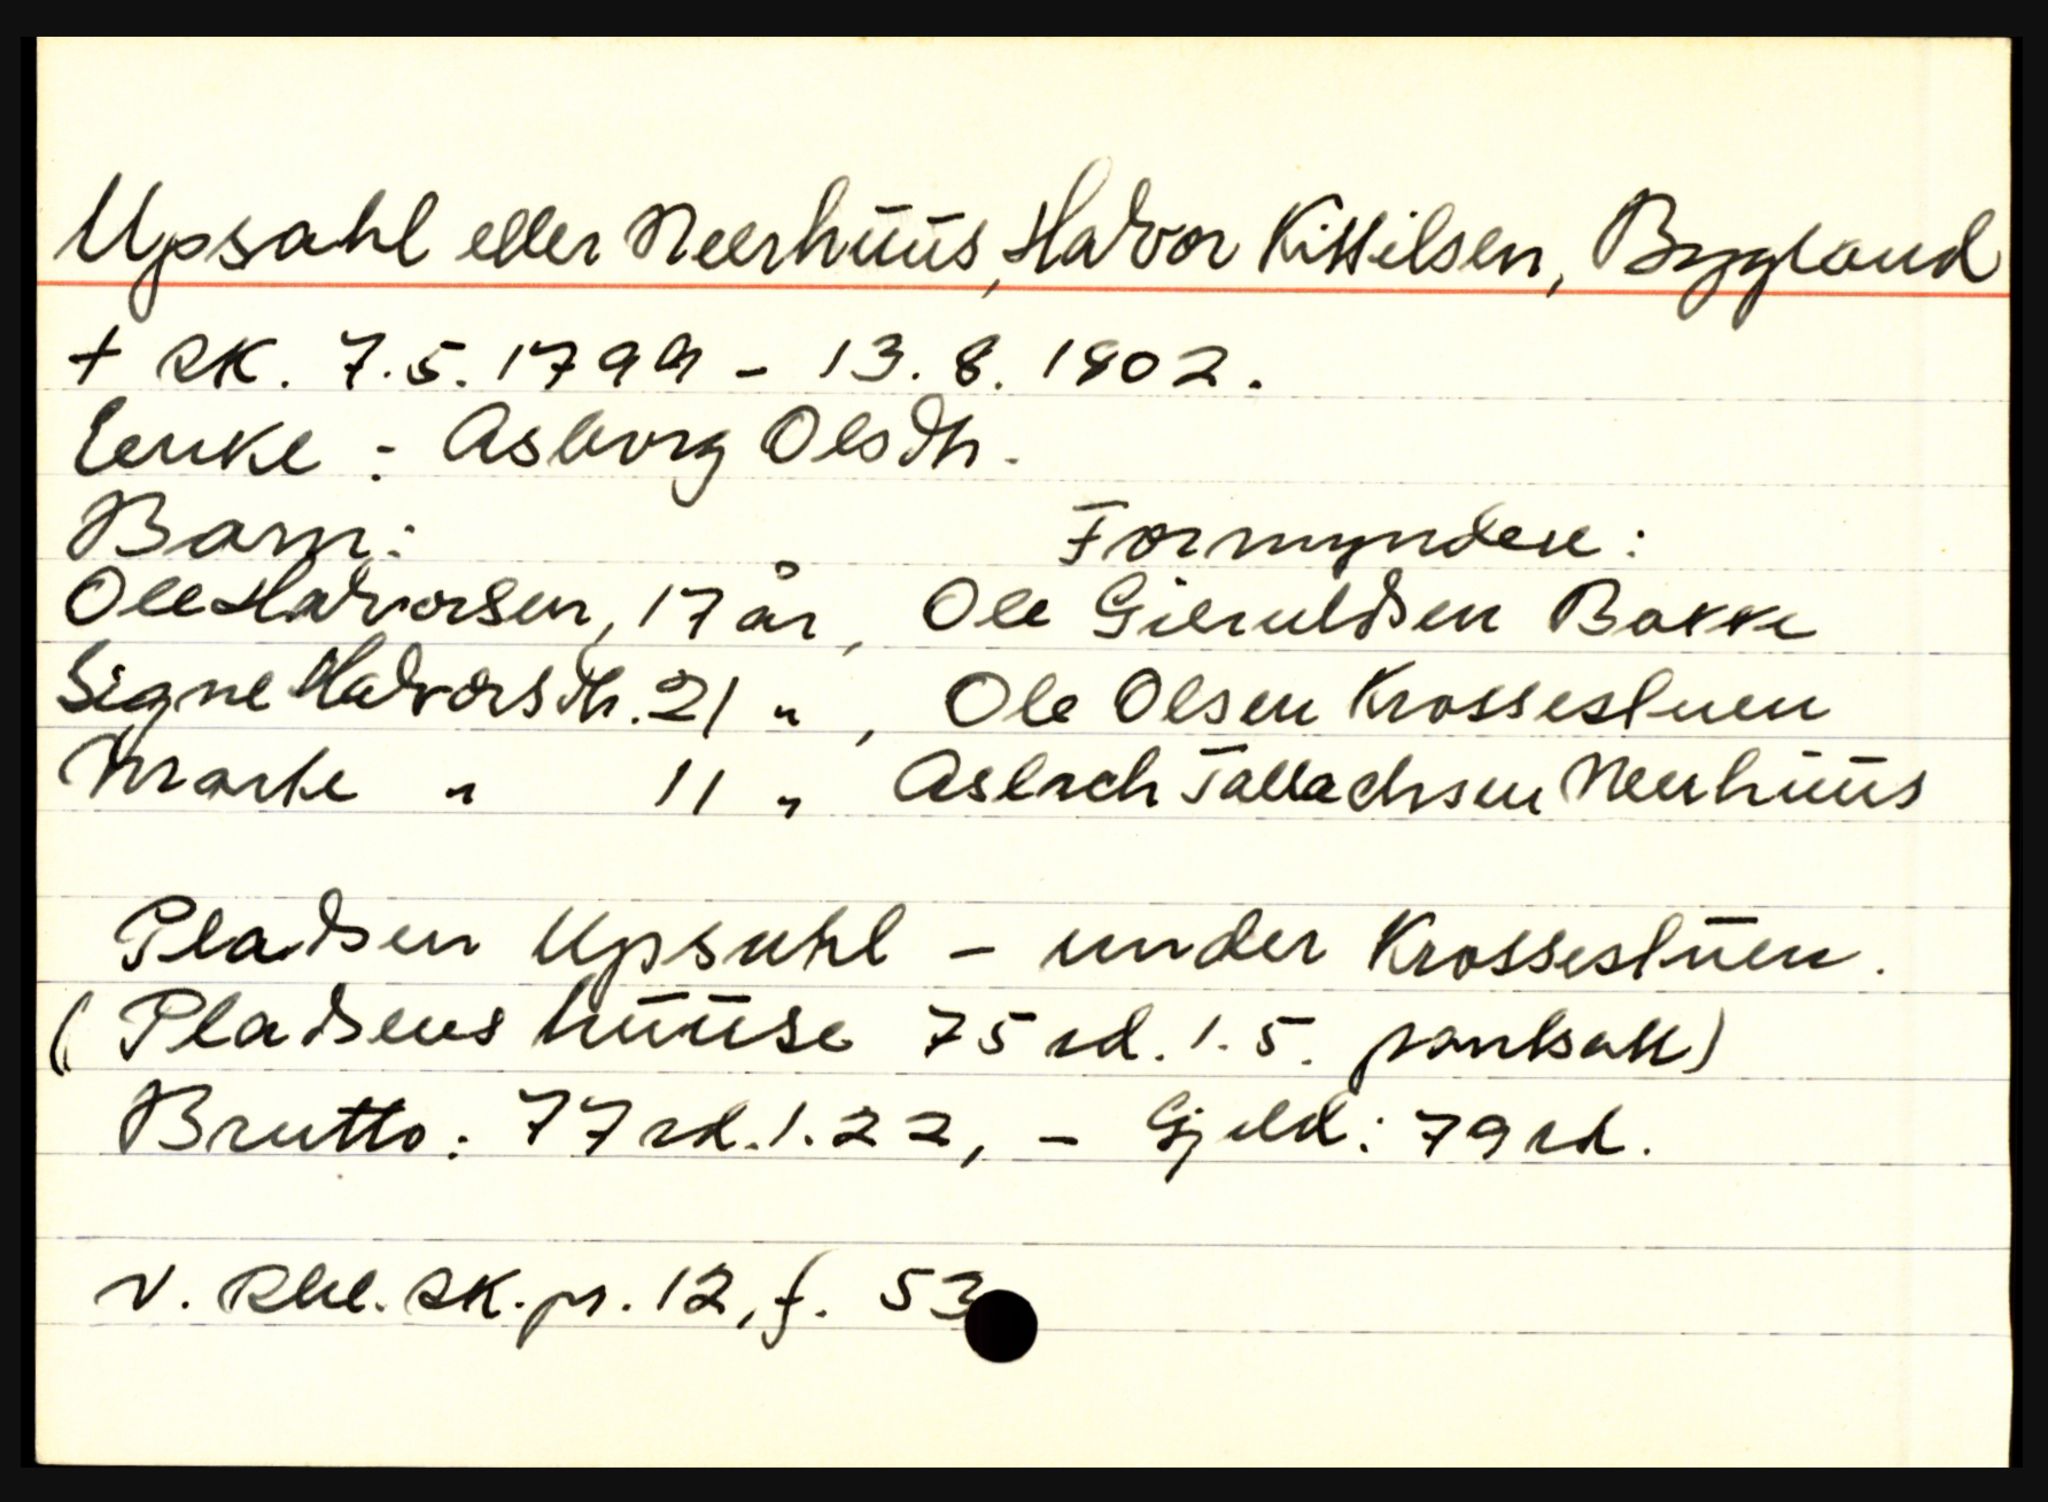 Upsahl eller Neerhūūs, Halvor Kittilsen, Bygland
+ SK. 7.5.1799 - 13.8.1802.
Enke: Asborg Olsdtr.
Barn: Formyndere:
Ole Halvorsen, 17 år, Ole Gieruldsen Bakke
Signe Halvorsdtr. 21 " , Ole Olsen Krossestuen
Marte " 11 " Aslach Tallachsen Neerhūūs
Pladsen Upsahl - under Krossestūen.
(Pladsens hūūse 75 rd. 1.5. pantsatt)
Brutto: 77 rd. 1.22, - Gjeld: 79 rd.
V. Rbl. SK. pr. 12, f. 53